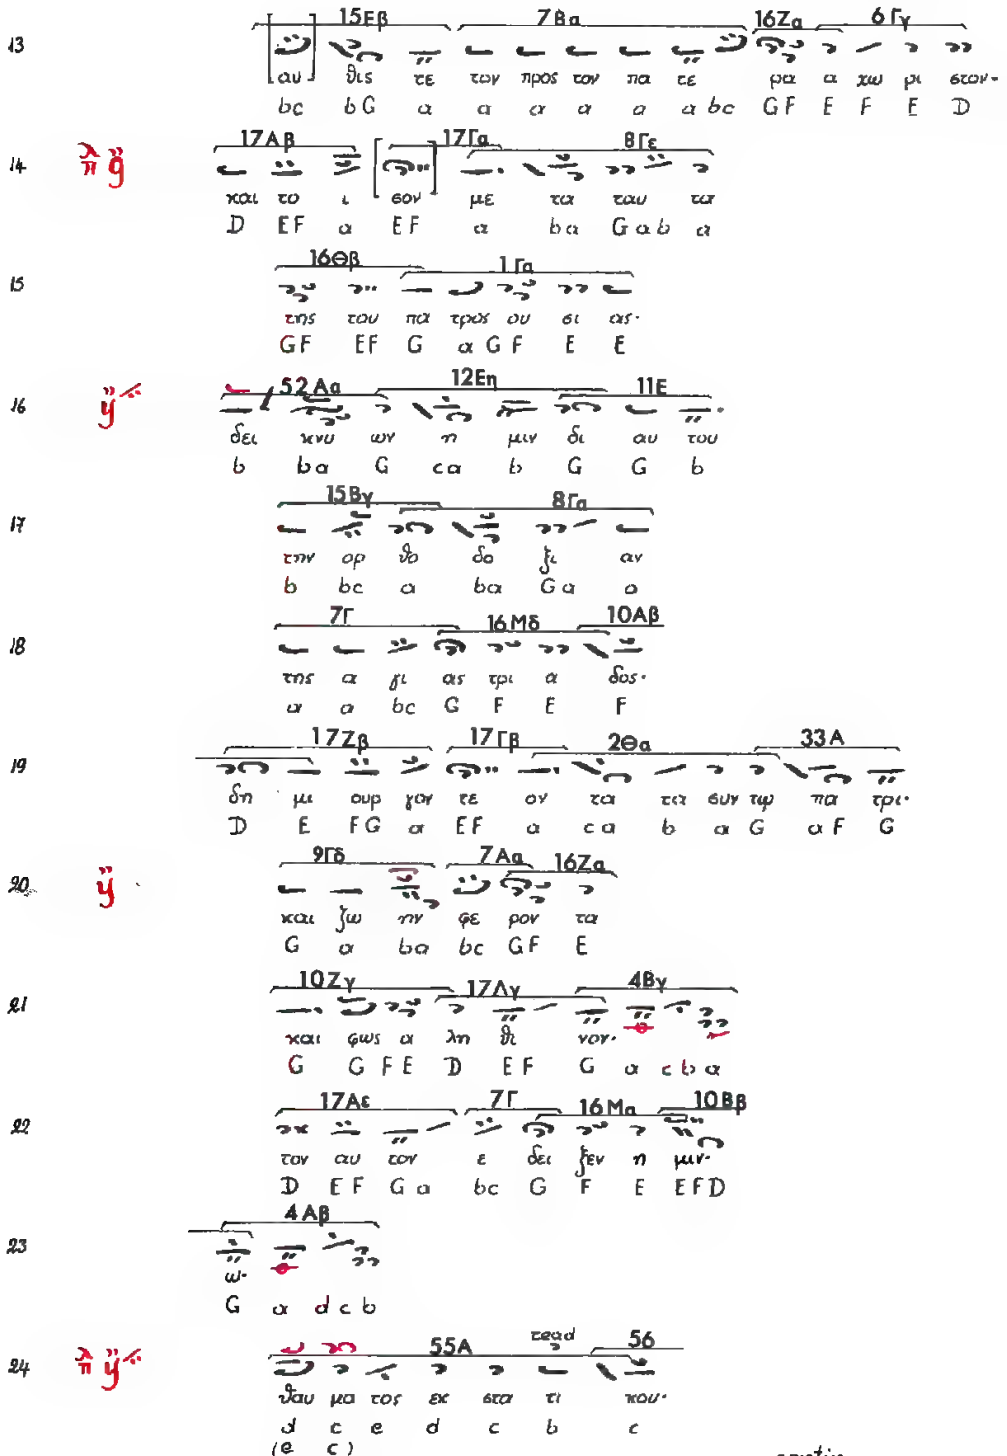 15Εβ 7Βα 16Ζα 6Γγ
13
[αυ] θις τε τον προς τον πα τε ρα α χω ρι στον·
bc bG a a a a a a bc GF E F E D
17Αβ 17Γα 8Γε
14
και το ι σον με τα ταυ τα
D EF a EF a ba Gab a
16Θβ 1Γα
15
της του πα τρος ου σι ας·
GF EF G a GF E E
52Αα 12Εη 11Ε
16
δει κνυ ων η μιν δι αυ του
b ba G ca b G G b
15Βγ 8Γα
17
την ορ θο δο ξι αν
b bc a ba Ga a
7Γ 16Μδ 10Αβ
18
της α γι ας τρι α δος·
a a bc G F E F
17Ζβ 17Γβ 2Θα 33Α
19
δη μι ουρ γον τε ον τα τα συν τω πα τρι·
D E FG a EF a ca b a G aF G
9Γδ 7Αα 16Ζα
20
και ζω ην φε ρον τα
G a ba bc GF E
10Ζγ 17Λγ 4Βγ
21
και φως α λη θι νον·
G G FE D EF G a cba
17Αε 7Γ 16Μα 10Ββ
22
τον αυ τον ε δει ξεν η μιν·
D EF Ga bc G F E EFD
4Αβ
23
ω·
G a dcb
55Α read 56
24
θαυ μα τος εκ στα τι κου·
d c e d c b c
(e c)